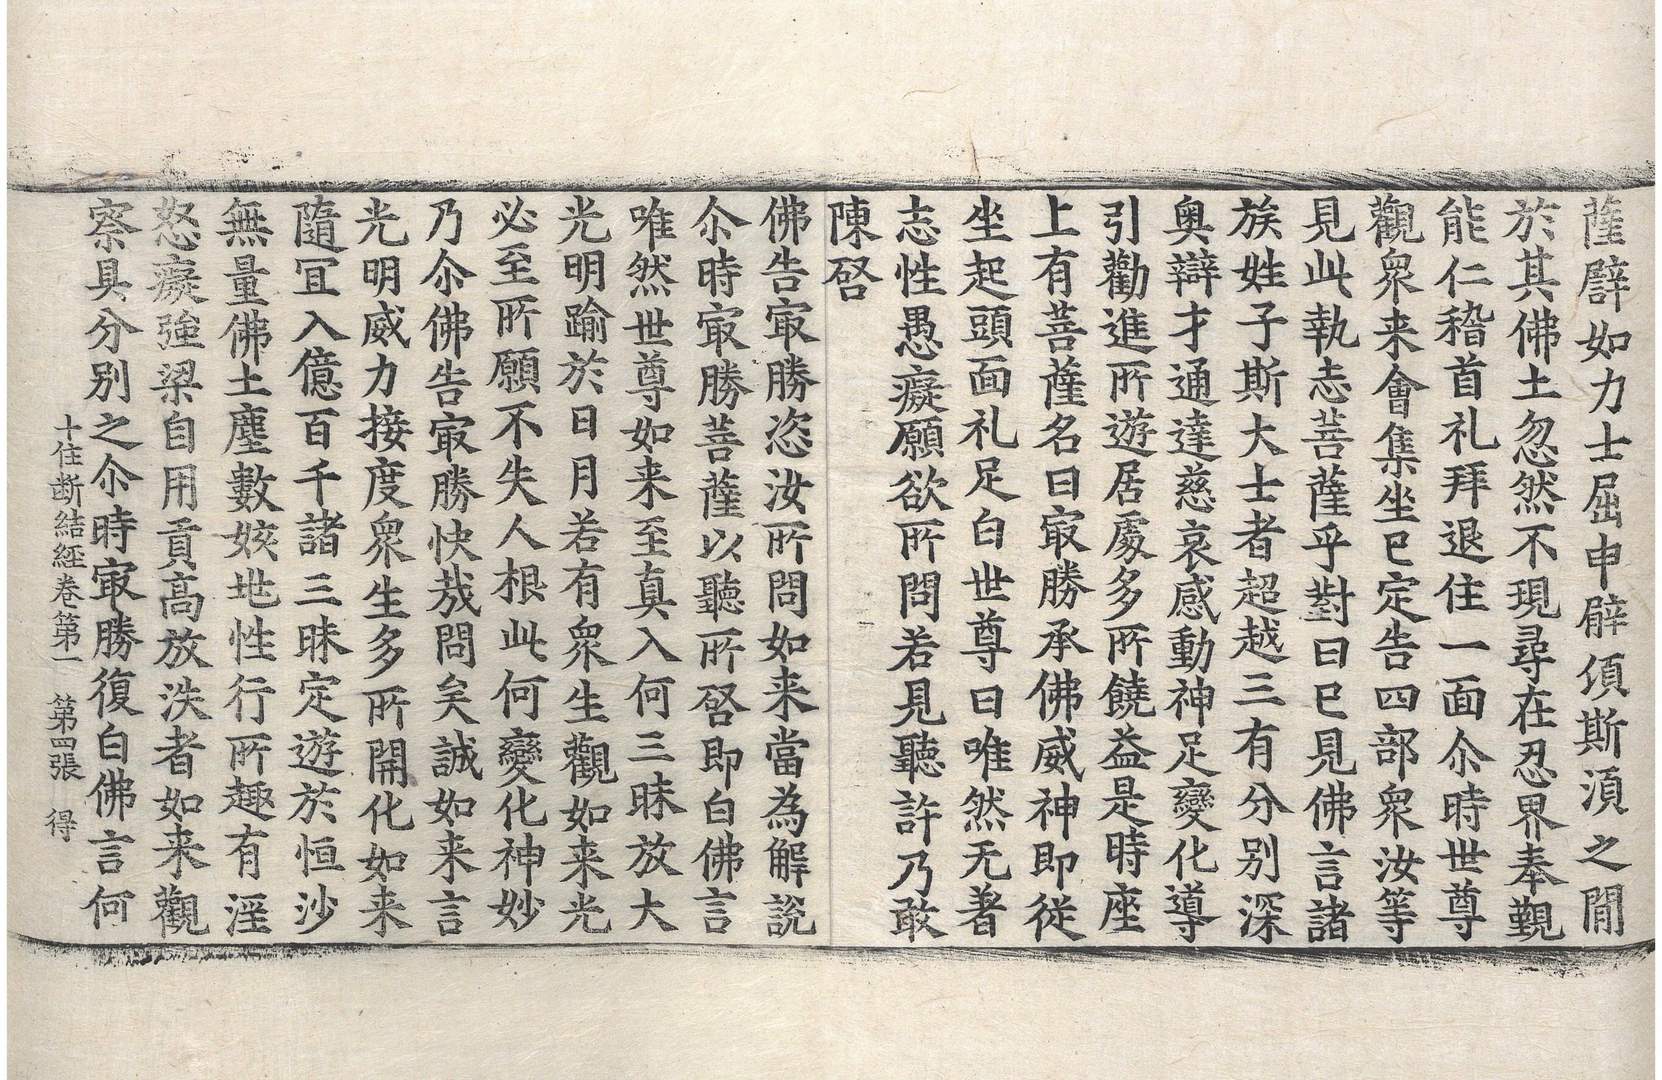 薩臂如力士屈申臂傾斯湏之閒
於其佛土忽然不現尋在忍界奉覲
能仁稽首礼拜退住一面尒時世尊
觀衆来會集坐已定告四部衆汝等
見此執志菩薩乎對曰已見佛言諸
族姓子斯大士者超越三有分別深
奥辯才通達慈哀感動神足變化導
引勸進所遊居處多所饒益是時座
上有菩薩名曰㝡勝承佛威神即從
坐起頭面礼足白世尊曰唯然无著
志性愚癡願欲所問若見聽許乃敢
陳啓
佛告㝡勝恣汝所問如来當為解說
尒時㝡勝菩薩以聽所啓即白佛言
唯然世尊如来至真入何三昧放大
光明踰於日月若有衆生觀如来光
必至所願不失人根此何變化神妙
乃尒佛告㝡勝快㢤問矣誠如来言
光明威力接度衆生多所開化如来
隨冝入億百千諸三昧定遊於恒沙
無量佛土塵數姟地性行所趣有淫
怒癡強梁自用貢高放泆者如来觀
察具分別之尒時㝡勝復白佛言何
十住断結經卷第一　第四張　得